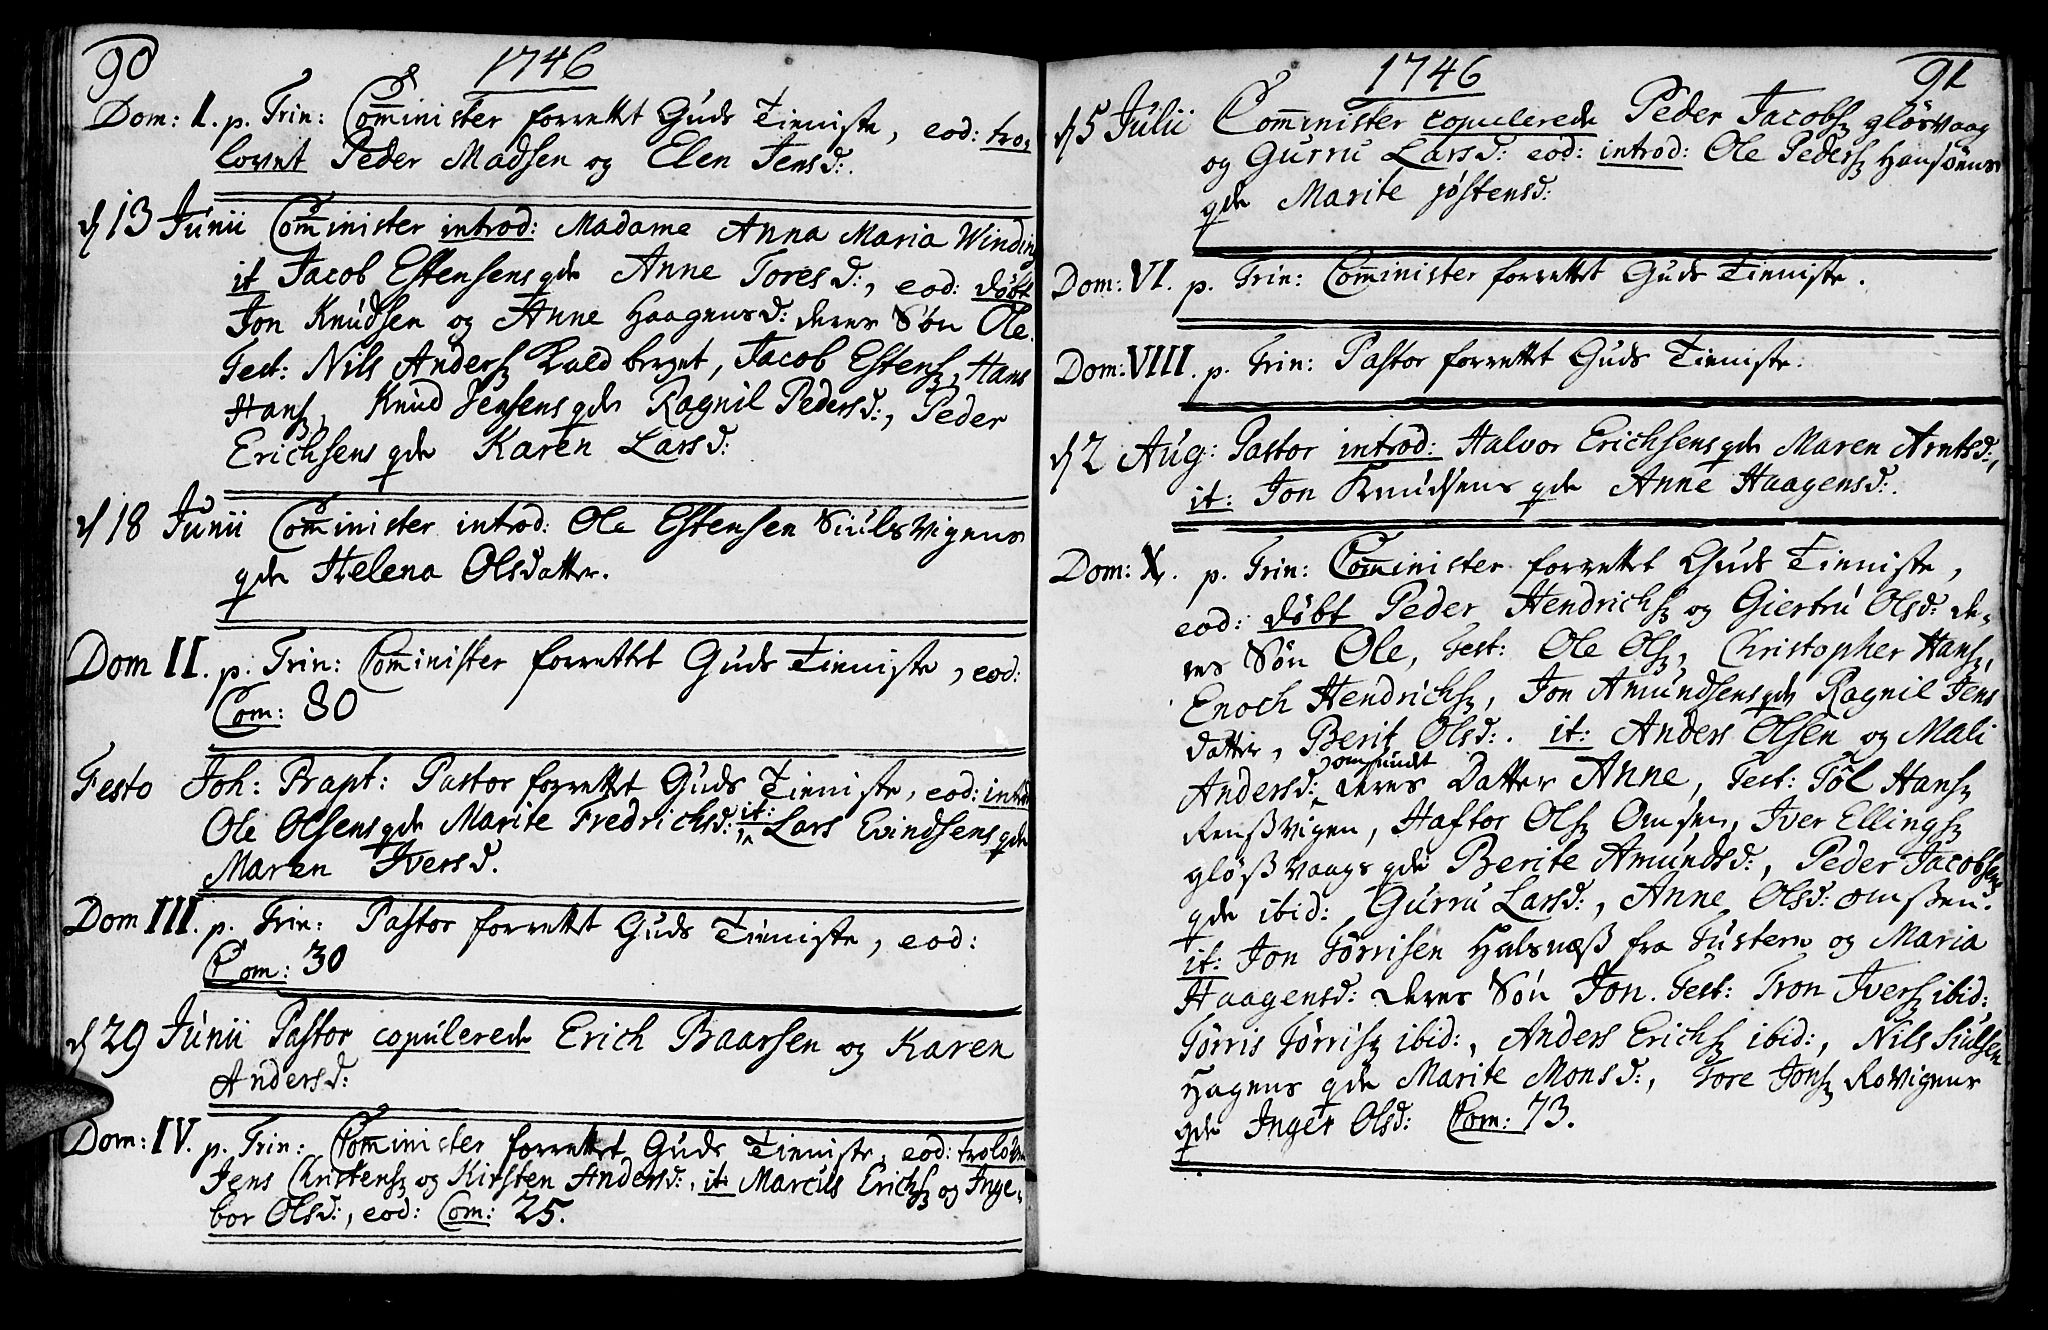 90
1746
Dom: I. p. Trin: Comminister forrettet Guds Tienniste, eod: tro-
lovet Peder Madsen og Elen Jensd:.
d 13 Junii Comminister introd: Madame Anna Maria Winding
it Jacob Estensens qde Anne Toresd:, eod: døbt
Jon Knudsen og Anne Haagensd: deres Søn Ole.
Test: Nils Anders Kuldberget, Jacob Estens, Hans
Hans, Knud Jensens qde Ragnil Pedersd:, Peder
Erichsens qde Karen Larsd:
d 18 Junii Comminister introd: Ole Estensen Siulsvigens
qde Helena Olsdatter.
Dom II. p. Trin: Comminister forrettet Guds Tienniste, eod:
Com: 80
Festo Joh: Bapt: Pastor forrettet Guds Tienniste, eod: introd
Ole Olsens qde Marite Fredrichsd: it: Lars Evindsens qde
Maren Iversd.
Dom III. p. Trin: Pastor forrettet Guds Tienniste, eod:
Com: 30
d 29 Junii Pastor copulerede Erich Baarsen og Karen
Andersd:
Dom: IV. p. Trin: Comminister forrettet Guds Tienniste, eod: trolov
Jens Christens og Kirsten Andersd:, it: Marcus Erichs og Inge-
bor Olsd:, eod: Com: 25.
1746
91
d 5 Julii Comminister copulerede Peder Jacobs gløsvaag
og Gurru Larsd: eod: introd: Ole Peders Hansøens
qde Marite Jøstensd:
Dom: VI. p. Trin: Comminister forrettet Guds Tienniste.
Dom: VIII. p. Trin: Pastor forrettet Guds Tienniste.
d 2 Aug: Pastor introd: Halvor Erichsens qde Maren Arntsd:,
it: Jon Knudsens qde Anne Haagensd:.
Dom: X. p. Trin: Comminister forrettet Guds Tienniste,
eod: døbt Peder Hendrichs og Giertru Olsd: de-
res Søn Ole, Test: Ole Ols, Christopher Hans,
Enoch Hendrichs, Jon Amundsens qde Ragnil Jens
datter, Berit Olsd:. it: Anders Olsen og Mali
Andersd: omsundt deres Datter Anne, Test: Tøl Hans
Rensßvigen, Haftor Ols Omsen, Iver Ellings
gløßvaags qde Berite Amundsd:, Peder Jacobsens
qde ibid: Gurru Larsd:, Anne Olsd: omßen.
it: Jon Tørrisen Halsnæß fra Tustern og Maria
Haagensd: deres Søn Jon. Test: Tron Ivers ibid:
Tørris Tørris ibid:, Anders Erichs ibid:, Nils Siulsen
Hagens qde Marite Monsd:, Tore Jons Rovigens
qde Inger Olsd: Com: 73.